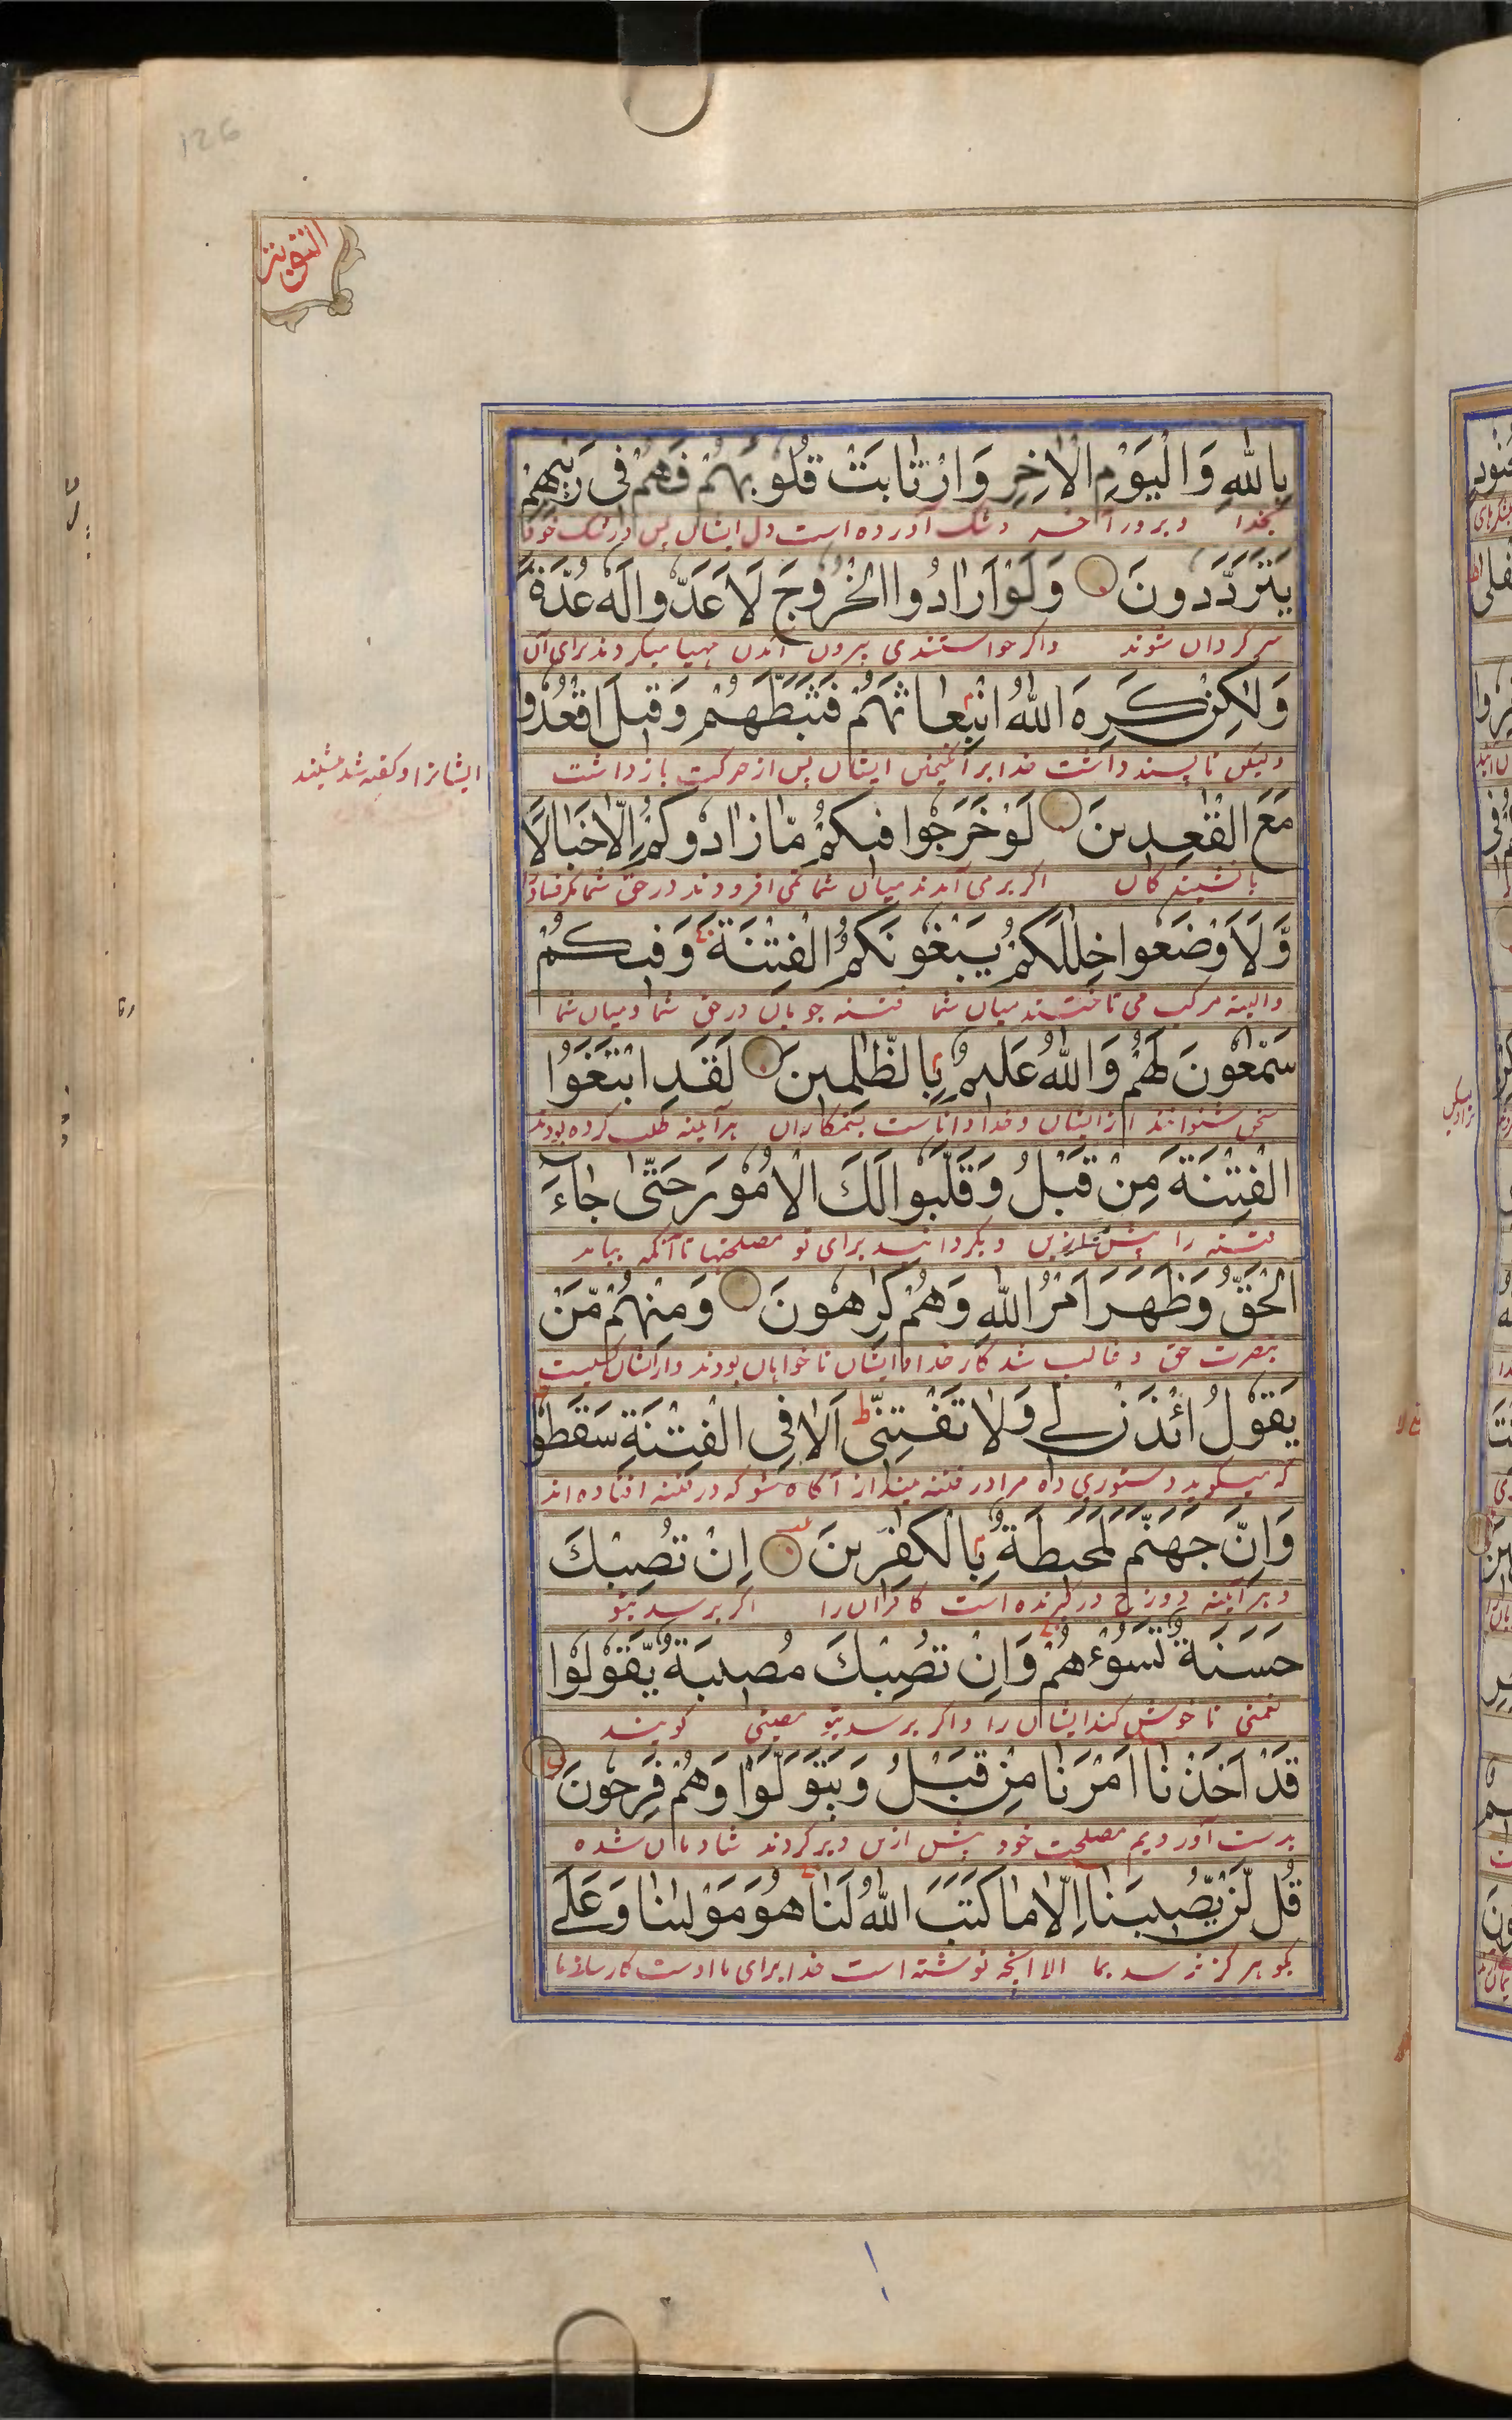 126
التوبة
بِاللهِ وَالْيَوْمِ الْاٰخِرِ وَارْتَابَتْ قُلُوبُهُمْ فَهُمْ فِى رَيْبِهِمْ
بخدا و بروز آخر و شک آورده است دل ایشان پس در شک خود
يَتَرَدَّدُونَ وَلَوْ اَرَادُوا الْخُرُوجَ لَاَعَدُّوا لَهُ عُدَّةً
سرگردان شوند و اگر خواستندی بیرون آمدن مهیا میکردند برای آن
وَلٰكِنْ كَرِهَ اللهُ انْبِعَاثَهُمْ فَثَبَّطَهُمْ وَقِيلَ اقْعُدُوا
ولیکن ناپسند داشت خدا برانگیختن ایشان پس از حرکت بازداشت
ایشانرا و گفته شد بنشینید
مَعَ الْقٰعِدِينَ لَوْ خَرَجُوا فِيكُمْ مَّا زَادُوكُمْ اِلَّا خَبَالًا
با نشینندگان اگر برمی آمدند میان شما نمی افزودند در حق شما مگر فساد را
وَّلَاَوْضَعُوا خِلٰلَكُمْ يَبْغُونَكُمُ الْفِتْنَةَ وَفِيكُمْ
والبته مرکب می تاختند میان شما فتنه جویان در حق شما و میان شما
سَمّٰعُونَ لَهُمْ وَاللهُ عَلِيمٌ بِالظّٰلِمِينَ لَقَدِ ابْتَغَوُا
سخن شنوانند از ایشان و خدا داناست بستمکاران هر آینه طلب کرده بودند
الْفِتْنَةَ مِنْ قَبْلُ وَقَلَّبُوا لَكَ الْاُمُورَ حَتّٰى جَاءَ
فتنه را پیش ازین و بگردانیدند برای تو مصلحتها تا آنکه بیامد
الْحَقُّ وَظَهَرَ اَمْرُ اللهِ وَهُمْ كٰرِهُونَ وَمِنْهُمْ مَّنْ
نصرت حق و غالب شد کار خدا و ایشان ناخواهان بودند و از ایشان کسیست
يَقُولُ ائْذَنْ لِي وَلَا تَفْتِنِّى اَلَا فِى الْفِتْنَةِ سَقَطُوا
که میگوید دستوری ده مرا و در فتنه مینداز آگاه شو که در فتنه افتاده اند
وَاِنَّ جَهَنَّمَ لَمُحِيطَةٌ بِالْكٰفِرِينَ اِنْ تُصِبْكَ
و هر آینه دوزخ در گیرنده است کافران را اگر برسد بتو
حَسَنَةٌ تَسُؤْهُمْ وَاِنْ تُصِبْكَ مُصِيبَةٌ يَّقُولُوا
نعمتی ناخوش کند ایشان را و اگر برسد بتو مصیبتی گویند
قَدْ اَخَذْنَا اَمْرَنَا مِنْ قَبْلُ وَيَتَوَلَّوْا وَهُمْ فَرِحُونَ
بدست آوردیم مصلحت خود پیش ازین و برگردند شادمان شده
قُل لَّنْ يُّصِيبَنَا اِلَّا مَا كَتَبَ اللهُ لَنَا هُوَ مَوْلٰىنَا وَعَلَى
بگو هرگز نرسد بما الا آنچه نوشته است خدا برای ما اوست کارساز ما